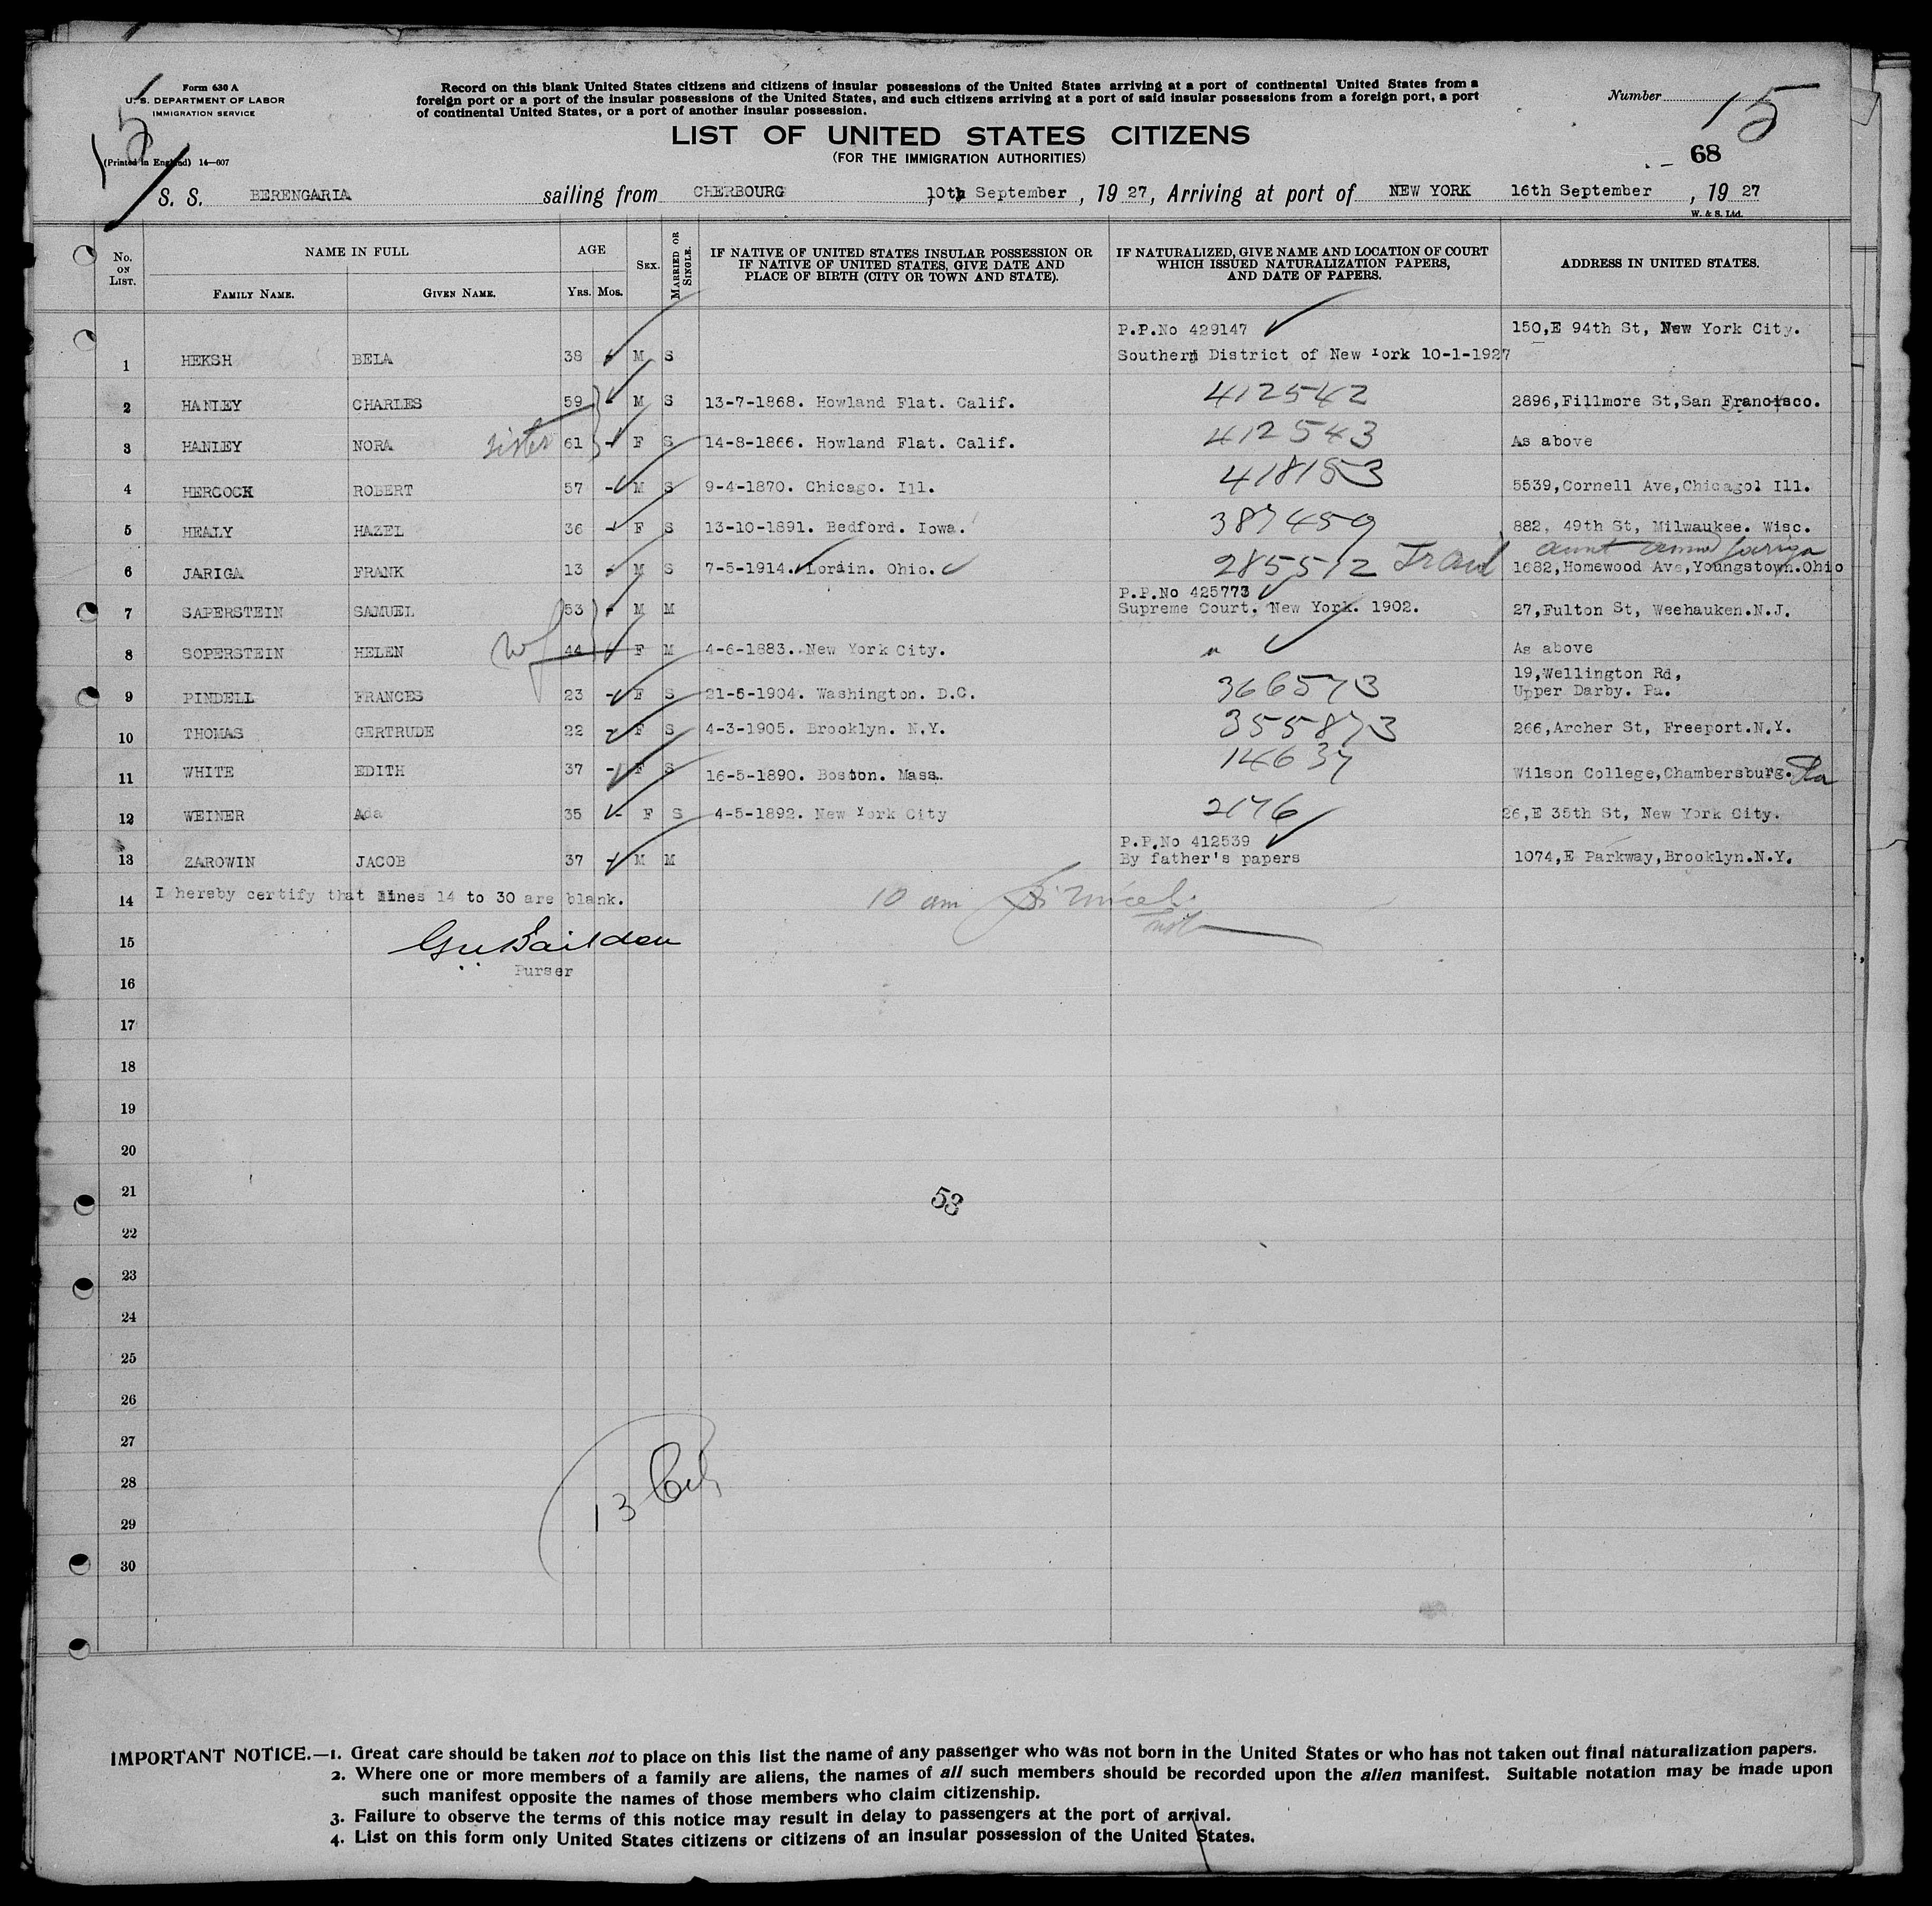 Form 630 A
U. S. DEPARTMENT OF LABOR
IMMIGRATION SERVICE
(Printed in England) 14—607
15
Record on this blank United States citizens and citizens of insular possessions of the United States arriving at a port of continental United States from a
foreign port or a port of the insular possessions of the United States, and such citizens arriving at a port of said insular possessions from a foreign port, a port
of continental United States, or a port of another insular possession.
Number 15
LIST OF UNITED STATES CITIZENS
(FOR THE IMMIGRATION AUTHORITIES)
68
S. S. BERENGARIA sailing from CHERBOURG, 10th September, 19 27, Arriving at port of NEW YORK 16th September, 19 27
W. & S. Ltd.
No. ON LIST. NAME IN FULL FAMILY NAME. GIVEN NAME. AGE YRS. MOS. SEX. MARRIED OR SINGLE. IF NATIVE OF UNITED STATES INSULAR POSSESSION OR IF NATIVE OF UNITED STATES, GIVE DATE AND PLACE OF BIRTH (CITY OR TOWN AND STATE). IF NATURALIZED, GIVE NAME AND LOCATION OF COURT WHICH ISSUED NATURALIZATION PAPERS, AND DATE OF PAPERS. ADDRESS IN UNITED STATES.
P.P.No 429147 150,E 94th St, New York City.
1 HEKSH BELA 38 - M S Southern District of New York 10-1-1927
2 HANLEY CHARLES 59 - M S 13-7-1868. Howland Flat. Calif. 412542 2896,Fillmore St,San Francisco.
3 HANLEY NORA sister 61 - F S 14-8-1866. Howland Flat. Calif. 412543 As above
4 HERCOCK ROBERT 57 - M S 9-4-1870. Chicago. Ill. 418153 5539,Cornell Ave,Chicago. Ill.
5 HEALY HAZEL 36 - F S 13-10-1891. Bedford. Iowa. 387459 882, 49th St, Milwaukee. Wisc.
aunt Jariga
6 JARIGA FRANK 13 - M S 7-5-1914. Lorain. Ohio. 285512 1682,Homewood Ave,Youngstown.Ohio
P.P.No 425773
7 SAPERSTEIN SAMUEL 53 - M M Supreme Court. New York. 1902. 27,Fulton St, Weehauken.N.J.
8 SOPERSTEIN HELEN wf 44 F M 4-6-1883. New York City. " As above
19,Wellington Rd,
9 PINDELL FRANCES 23 - F S 21-5-1904. Washington. D.C. 366573 Upper Darby. Pa.
10 THOMAS GERTRUDE 22 - F S 4-3-1905. Brooklyn. N.Y. 355873 266,Archer St, Freeport.N.Y.
11 WHITE EDITH 37 - F S 16-5-1890. Boston. Mass. 14637 Wilson College,Chambersburg. Pa
12 WEINER Ada 35 - F S 4-5-1892. New York City 2176 26,E 35th St, New York City.
P.P.No 412539
13 ZAROWIN JACOB 37 - M M By father's papers 1074,E Parkway,Brooklyn.N.Y.
14 I hereby certify that lines 14 to 30 are blank. 10 am
15
Purser
16
17
18
19
20
21
53
22
23
24
25
26
27
28
13 Cit
29
30
IMPORTANT NOTICE.—1. Great care should be taken not to place on this list the name of any passenger who was not born in the United States or who has not taken out final naturalization papers.
2. Where one or more members of a family are aliens, the names of all such members should be recorded upon the alien manifest. Suitable notation may be made upon
such manifest opposite the names of those members who claim citizenship.
3. Failure to observe the terms of this notice may result in delay to passengers at the port of arrival.
4. List on this form only United States citizens or citizens of an insular possession of the United States.